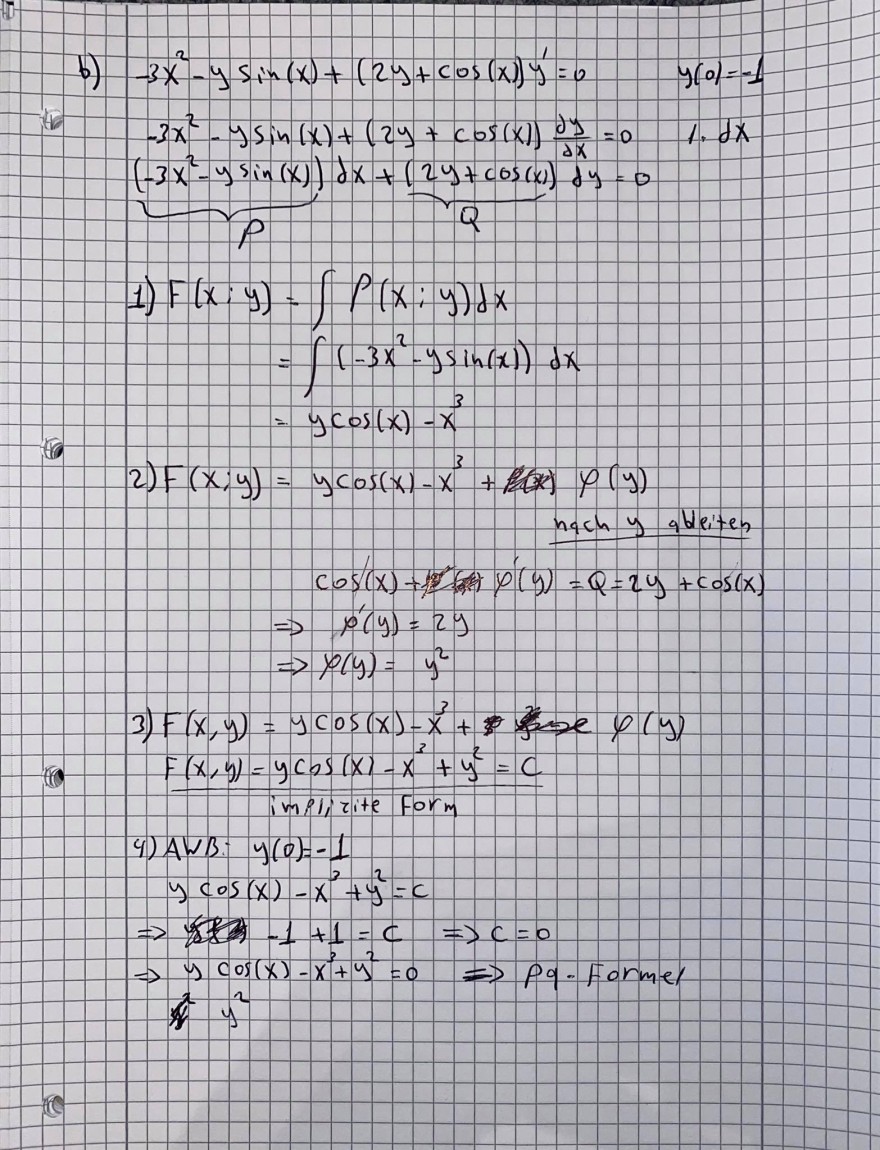 b) -3x² - y sin(x) + (2y + cos(x)) y' = 0 y(0) = -1
-3x² - y sin(x) + (2y + cos(x)) dy/dx = 0 |. dx
(-3x² - y sin(x)) dx + (2y + cos(x)) dy = 0
P Q
1) F(x;y) = ∫ P(x;y) dx
= ∫ (-3x² - y sin(x)) dx
= y cos(x) - x³
2) F(x;y) = y cos(x) - x³ + φ(y)
nach y ableiten
cos(x) + φ'(y) = Q = 2y + cos(x)
⇒ φ'(y) = 2y
⇒ φ(y) = y²
3) F(x,y) = y cos(x) - x³ + φ(y)
F(x,y) = y cos(x) - x³ + y² = C
implizite Form
4) AWB: y(0) = -1
y cos(x) - x³ + y² = C
⇒ -1 + 1 = C ⇒ C = 0
⇒ y cos(x) - x³ + y² = 0 ⇒ pq-Formel
y²